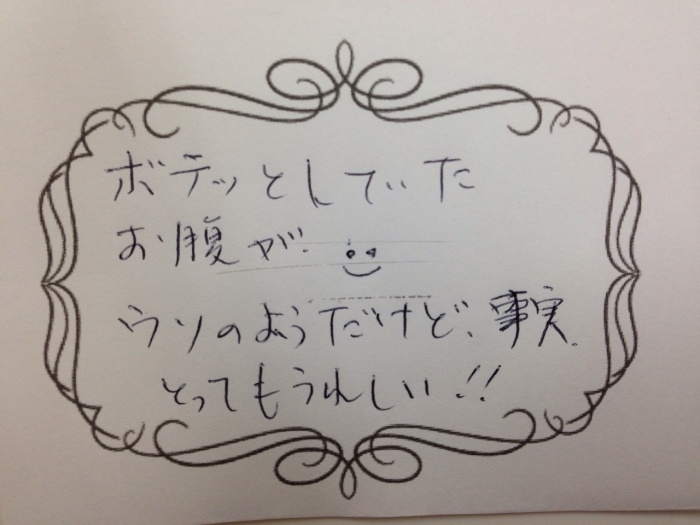 ボテッとしていた
お腹が
ウソのようだけど、事実
とってもうれしい!!